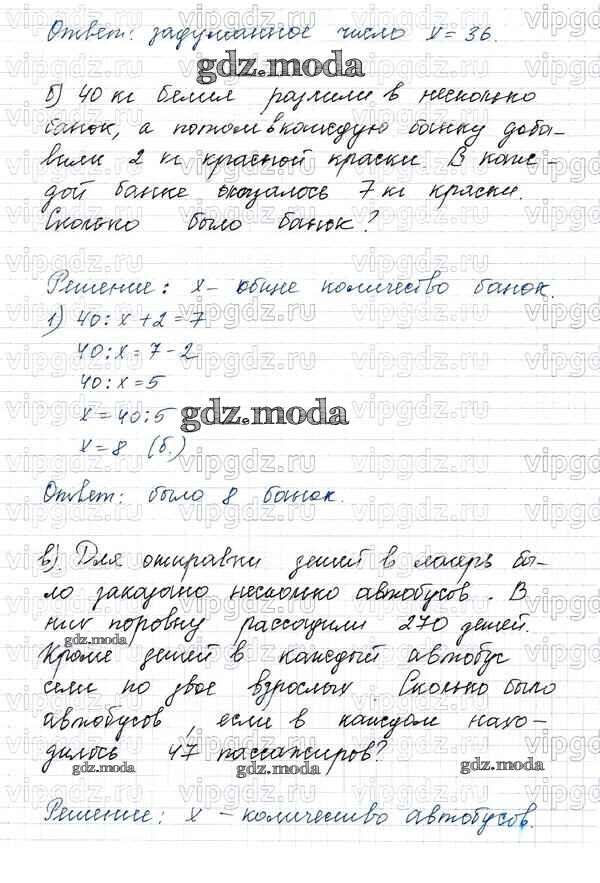 Ответ: задуманное число x = 36.
gdz.moda
б) 40 кг белил разлили в несколько
банок, а потом в каждую банку доба-
вили 2 кг красной краски. В каж-
дой банке оказалось 7 кг краски.
Сколько было банок?
Решение: x – общее количество банок.
1) 40 : x + 2 = 7
40 : x = 7 - 2
40 : x = 5
x = 40 : 5
gdz.moda
x = 8 (б.)
Ответ: было 8 банок.
в) Для отправки детей в лагерь бы-
ло заказано несколько автобусов. В
них поровну рассадили 270 детей.
gdz.moda
Кроме детей в каждый автобус
сели по двое взрослых. Сколько было
автобусов, если в каждом нахо-
дилось 47 пассажиров?
gdz.moda gdz.moda gdz.moda
Решение: x – количество автобусов.
vipgdz.ru